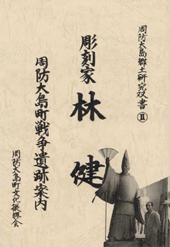 周防大島郷土研究双書 Ⅲ
彫刻家 林 健
周防大島町戦争遺跡案内
周防大島町文化振興会